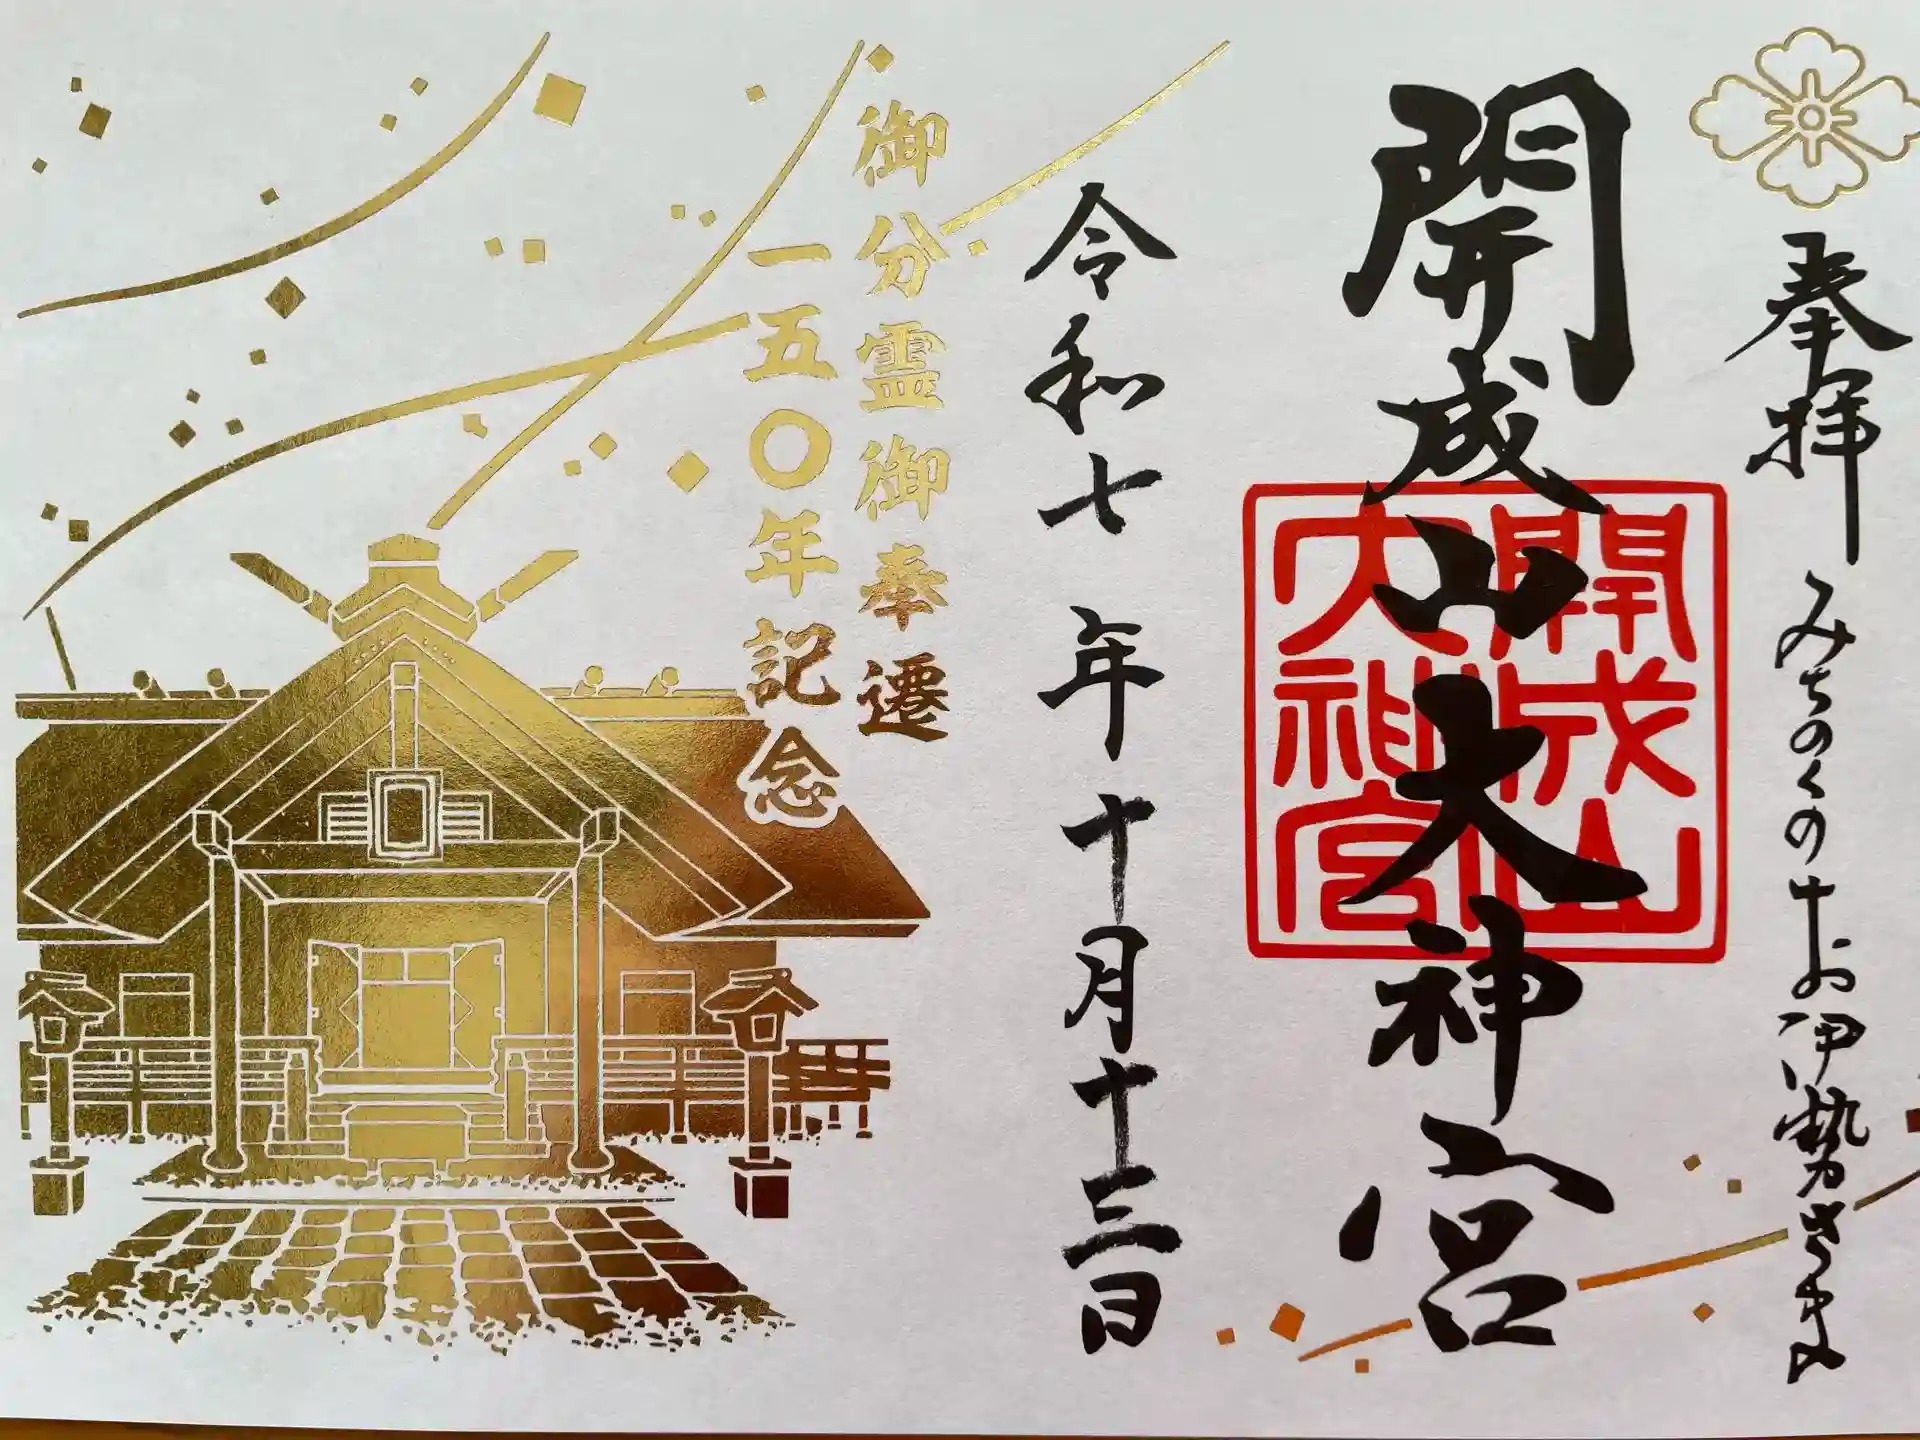 奉拝 みちのくのお伊勢さま
開成山大神宮
開成山
大神宮
令和七年十月十三日
御分霊御奉遷
一五〇年記念